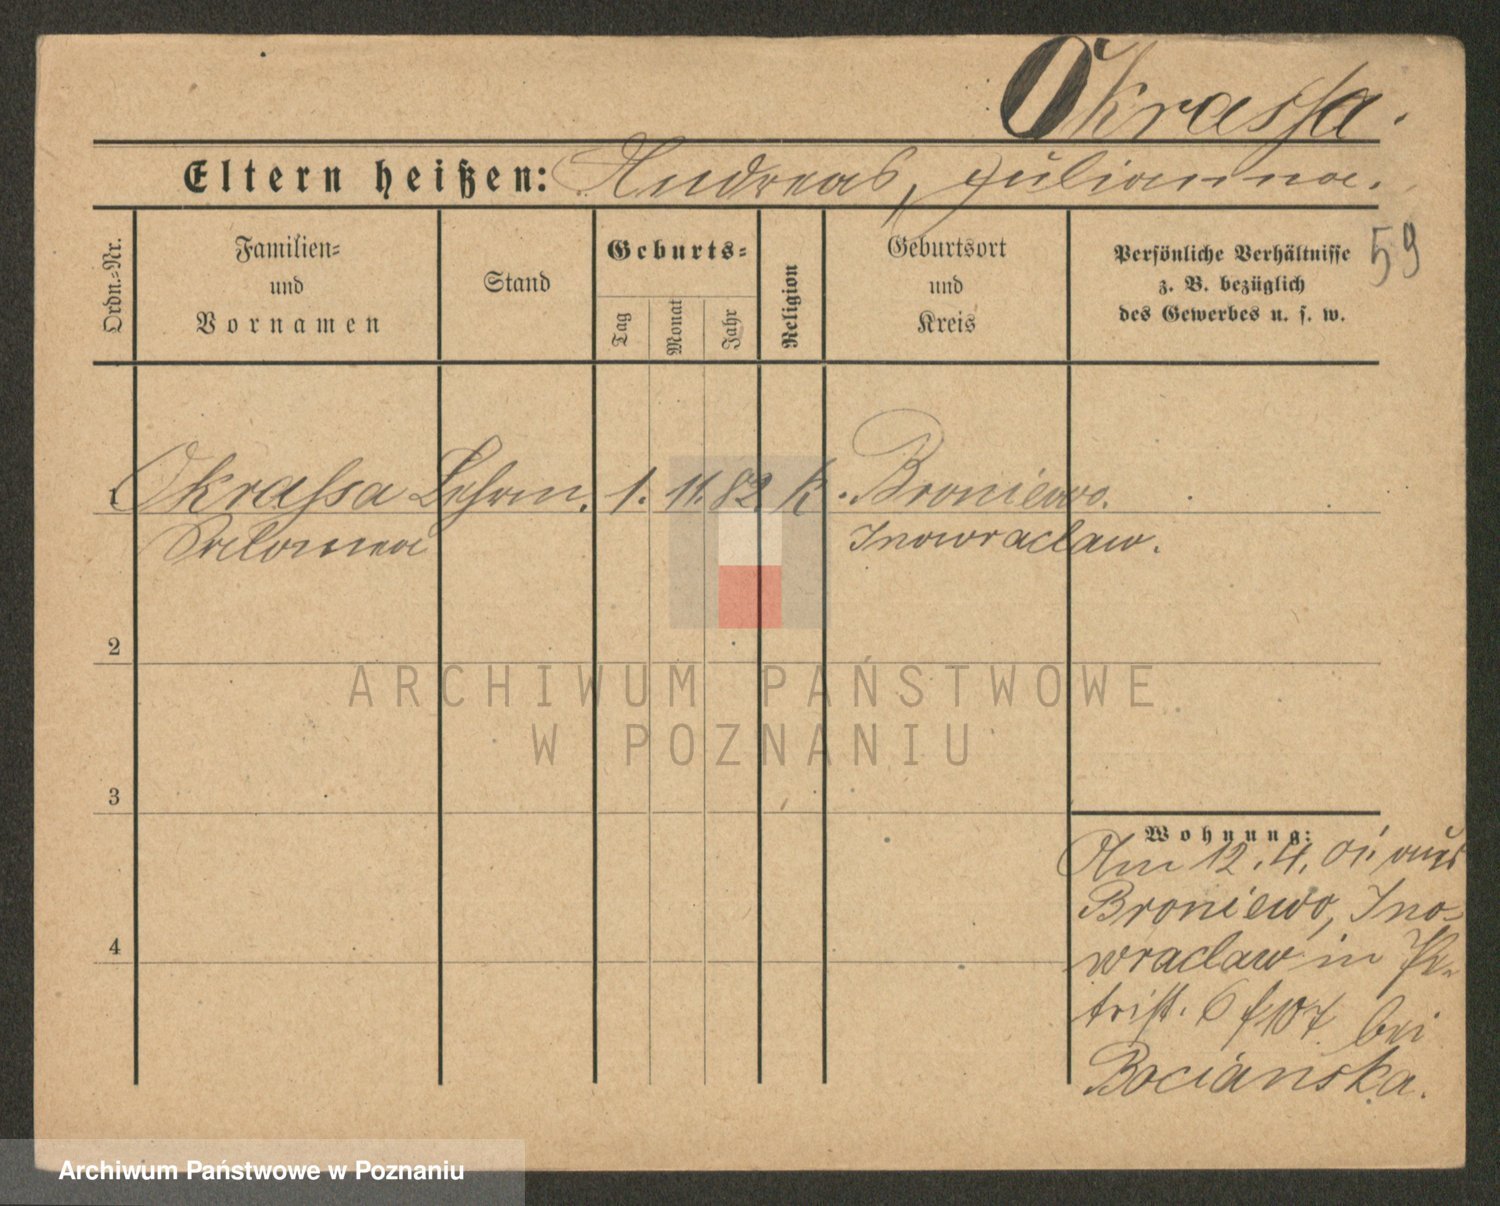 Okrassa.
Eltern heißen: Andreas, Julianna.
59
Ordn.=Nr.
Familien=
und
Vornamen
Stand
Geburts=
Tag
Monat
Jahr
Religion
Geburtsort
und
Kreis
Persönliche Verhältnisse
z. B. bezüglich
des Gewerbes u. s. w.
1 Okrassa 1. 11. 82 K. Broniewo.
Salomea Inowraclaw.
2
3
4
Wohnung:
Am 12. 4. 01. aus
Broniewo, Ino=
wraclaw in
6 bei
Bocianska.
ARCHIWUM PAŃSTWOWE
W POZNANIU
Archiwum Państwowe w Poznaniu